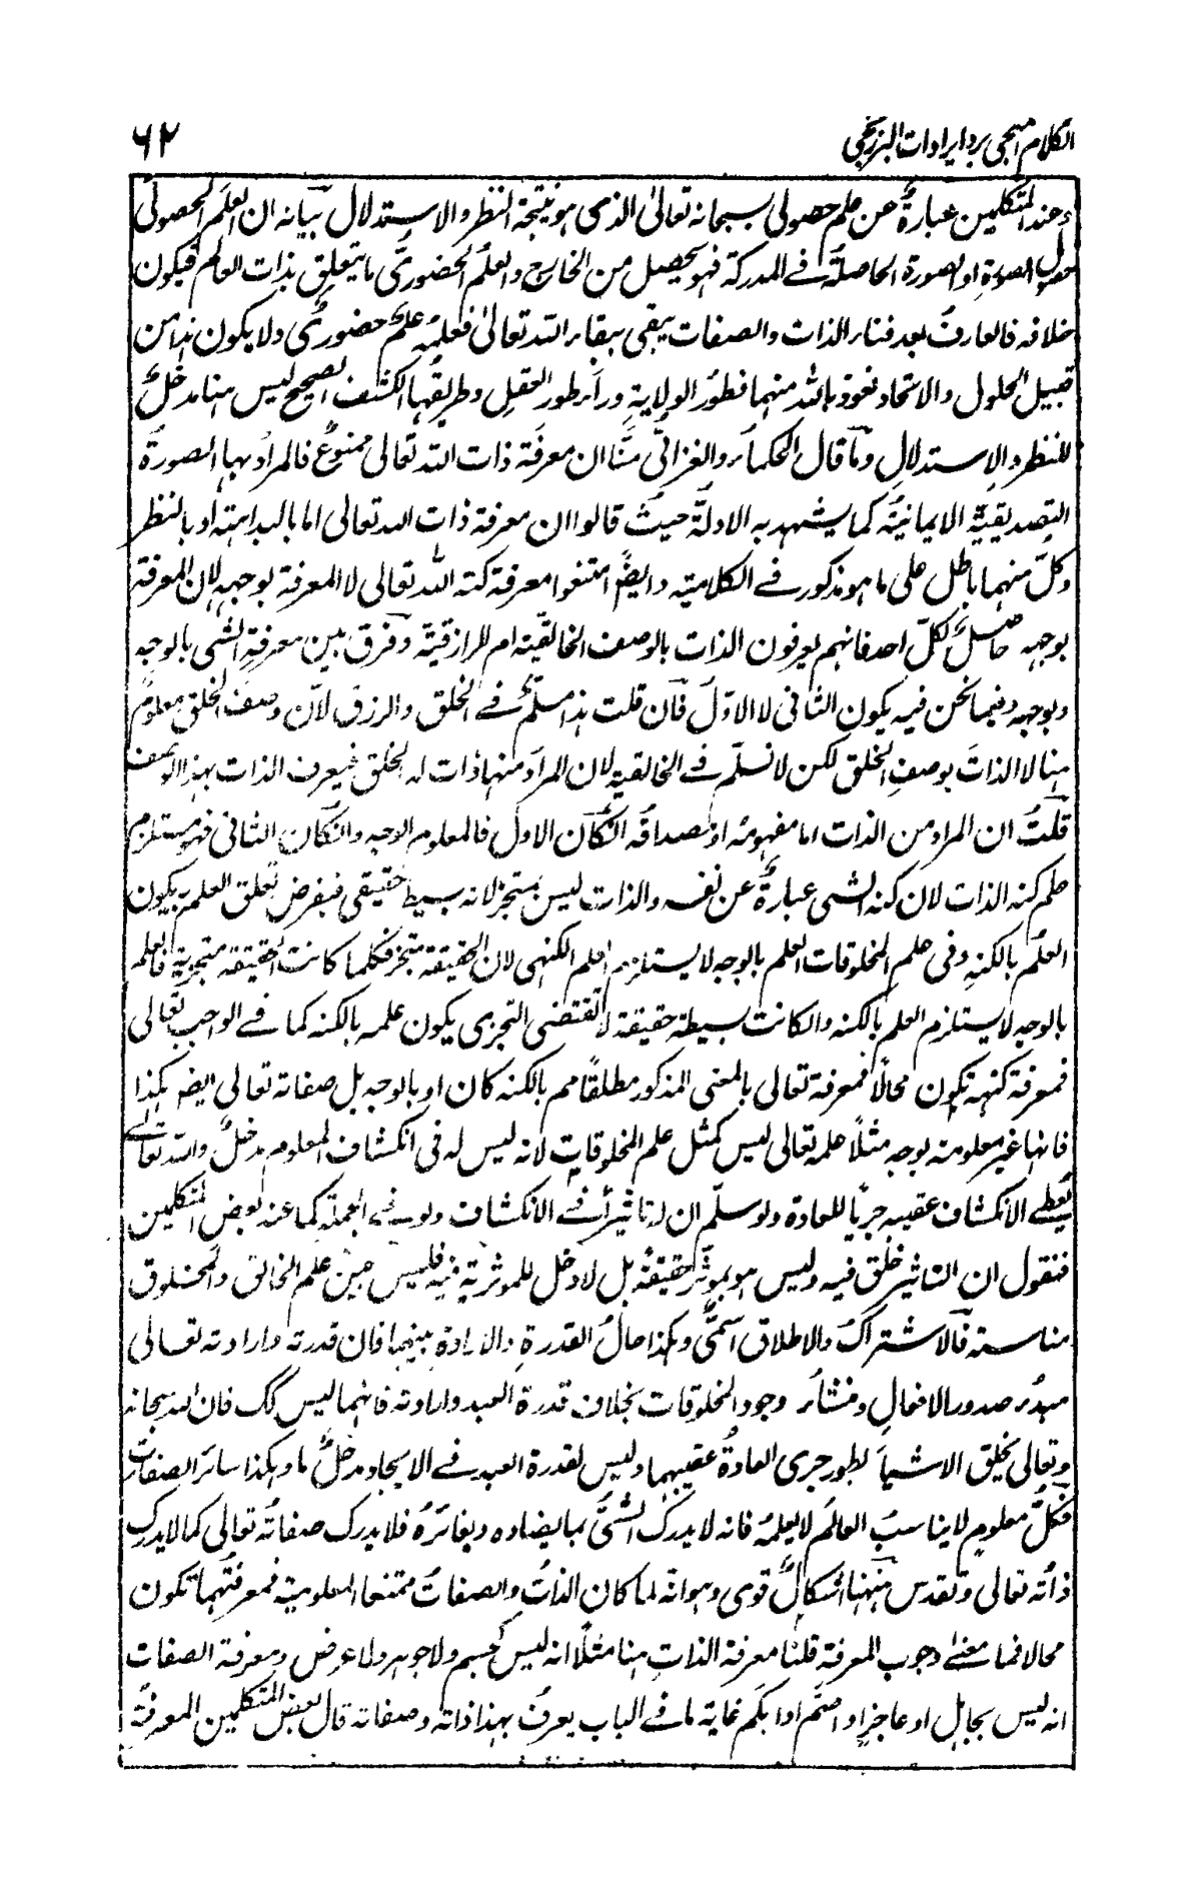 الكلام المنجي برد ايرادات البرزنجي
٦٢
وعند المتكلمين عبارةٌ عن علم حصولي سبحانه تعالىٰ الذي هو نتيجة النظر والاستدلال بيانه ان العلم الحصولى
حصول الصورة او الصورة الحاصلة فے المدركة فهو يحصيل من الخارج والعلمُ الحضوريَّ ما يتعلق بذات العالم فيكون
خلافه فالعارفُ بعد فناء الذات والصفات يبقى ببقاء اللہ تعالىٰ فعلمہ علمٌ حضوريٌ ولا يكون ہذا من
قبيل الحلول والاتحاد نعوذ باللہ منہما فطورُ الولايةِ وراَء طور العقلِ وطريقُها الكشف الصحيح ليس ہنا مدخلٌ
للنظر والاستدلالِ وما قال الحكماءُ والغزاليّ منّا ان معرفَة ذات اللہ تعالى ممنوعٌ فالمراد بہا الصورةُ
التصديقيّة الايمانيّة كما يشہد به الادلّة حيث قالوا ان معرفة ذات اللہ تعالى اما بالبداہتہ او بالنظر
وكلّ منہما باطل على ما ہو مذكور فے الكلاميّہ وايضًا امتنعوا معرفة كنہ اللہ تعالى لا المعرفة بوجہہ لان المعرفة
بوجہہ حاصلٌ لكلِّ احد فانہم يعرفون الذات بالوصف الخالقيّة ام الرازقيّة وفرق بين معرفةِ الشى بالوجہِ
وبوجہہ وفيما نحن فيہ يكون الثانى لا الاوّلَ فآن قلت ہذا مسلّمٌ فے الخلق والرزق لآن وصفَ الخلقِ معلومٌ
ہنا لا الذاتَ بوصفِ الخلق لكن لا نسلّم فے الخالقية لان المراَد منہا ذات لہ الخلق فيعرف الذات بہذا الوصف
قلتُ ان المراد من الذات اما مفہومہ او مصداقہ انكان الاول فالمعلوم الوجہ وانكان الثانى فہو مستلزم
علم كنہ الذات لان كنہ الشى عبارةٌ عن نفسہ والذات ليس بمتجز لانہ بسيط حقيقى فبفرض تعلق العلم بہ يكون
العلم بالكنہِ وفى علم المخلوقات العلم بالوجہ لا يستلزم العلم الكنہى لان الحقيقة متجزفكلما كانت الحقيقة متجزية فالعلم
بالوجہ لا يستلزم العلم بالكنہ وانكانت بسيطة حقيقة لا تقتضى التجزى يكون علمہ بالكنہ كما فے الواجب تعالى
فمعرفة كنہہ تكون محالًا فمعرفة تعالى بالمعنى المذكور مطلقًا مم بالكنہ كان او بالوجہ بل صفاتہ تعالى ايض ہكذا
فانہا غير معلومتہ بوجہ مثلًا علمہ تعالى ليس كمثل علم المخلوقاتِ لانہ ليس لہ فى انكشاف المعلوم مدخلٌ واللہ تعالے
يعطے الانكشاف عقيبہ جريًا للعادة ولو سلّم ان لہ تاثيرًا فے الانكشاف ولو فے الجملة كما عند بعض المتكلمين
فنقول ان التاثير خُلق فيہ وليس ہو بموثرٍ حقيقةً بل لا دخل للموثرية فيہ فليس بين علم الخالق والمخلوق
مناسبتہ فآلاشتراكُ والاطلاق اسمیٌّ وہكذا حالُ القدرةِ والارادة بينہما فان قدرتہ وارادتہ تعالى
مبدُء صدور الافعالِ ومنشأُ وجود المخلوقات بخلاف قدرة العبد وارادتہ فانہما ليس كك فان اللہ سبحانہ
وتعالى يخلق الاشياَ بطور جرى العادةُ عقيبہما وليس لقدرة العبد فے الايجاد مدخلٌ ما وہكذا سائر الصفات
فكلُّ معلومٍ لا يناسبُ العالَم لا يعلمُہ فانہ لا يدرك الشئَ بما يضادہ ويغائرُہ فلا يدرك صفاتُہ تعالى كما لا يدرك
ذاتُہ تعالى وتقدس فہہنا اشكالٌ قوى وہو انّہ لما كان الذاتُ والصفاتُ ممتنعا المعلومية فمعرفتُہما تكون
محالا فما معنےٰ وجوب المعرفة قلنا معرفة الذاتِ ہنا مثلًا انہ ليس كجسم ولا جوہر ولا عرض ومعرفة الصفات
انہ ليس بجاہل او عاجزٍ او اصمّ او ابكم غايتہ ما فے الباب يعرفُ بہذا ذاتُہ وصفاتہ قال بعض المتكلمين المعرفة